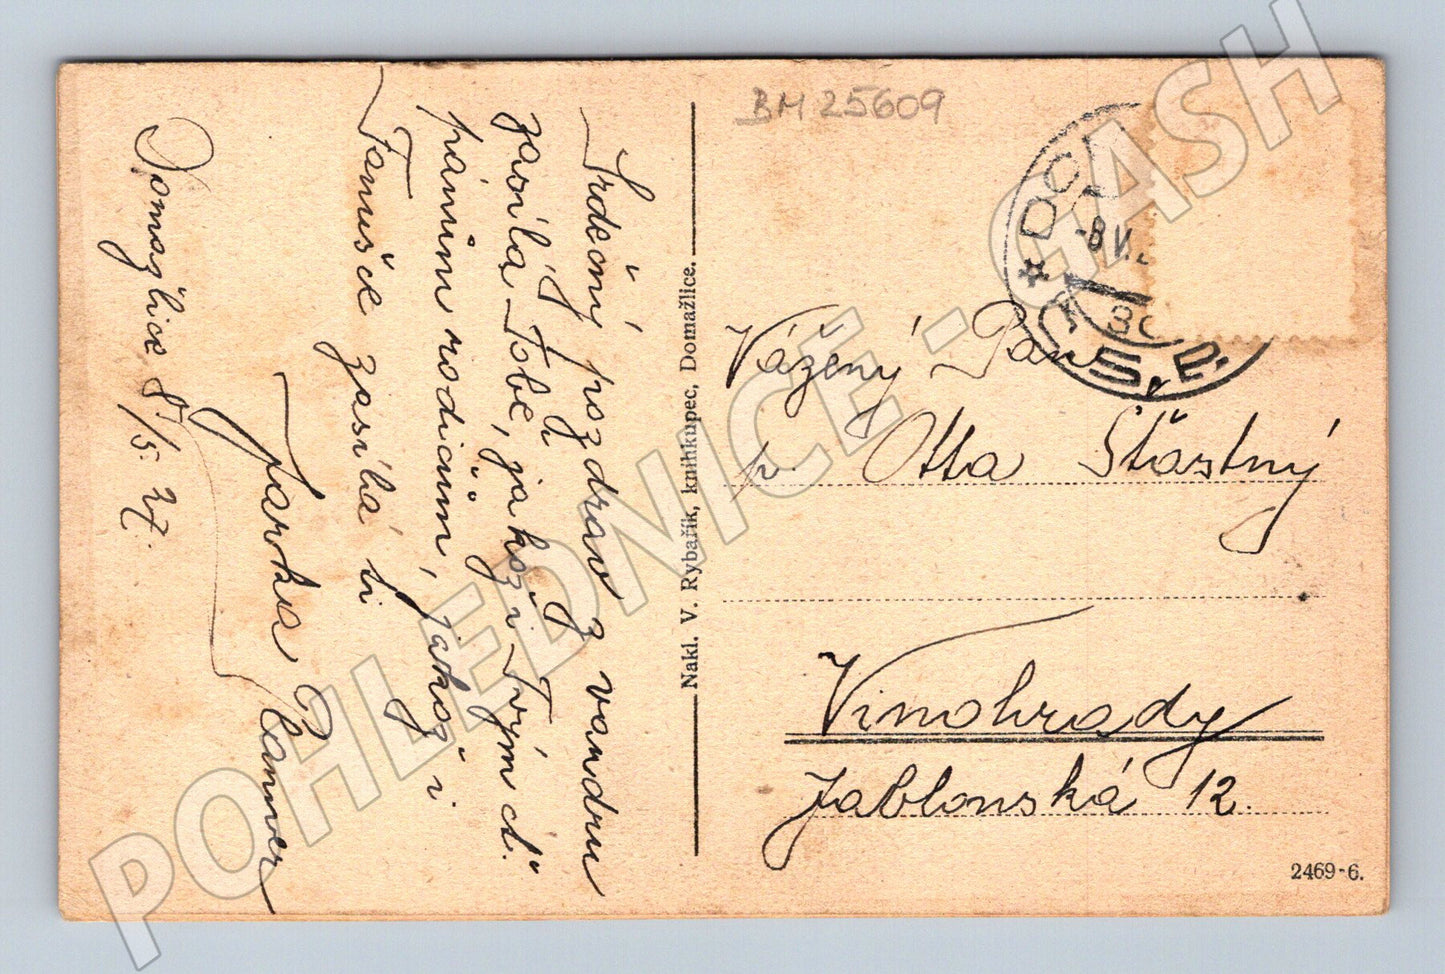 BM 25609
Srdečný pozdrav z vandru
zasílá Tobě, jakož i Tvým ct.
pánům rodičům, jakož i
Fanušce zasílá ti
Jarka
Domažlice 8/5. 27.
Nakl. V. Rybařík, knihkupec, Domažlice.
-8 V.
Č.S.P.
Vážený Pan
p. Otta Šťastný
Vinohrady
Jablonská 12.
2469-6.
POHLEDNICE - GASH